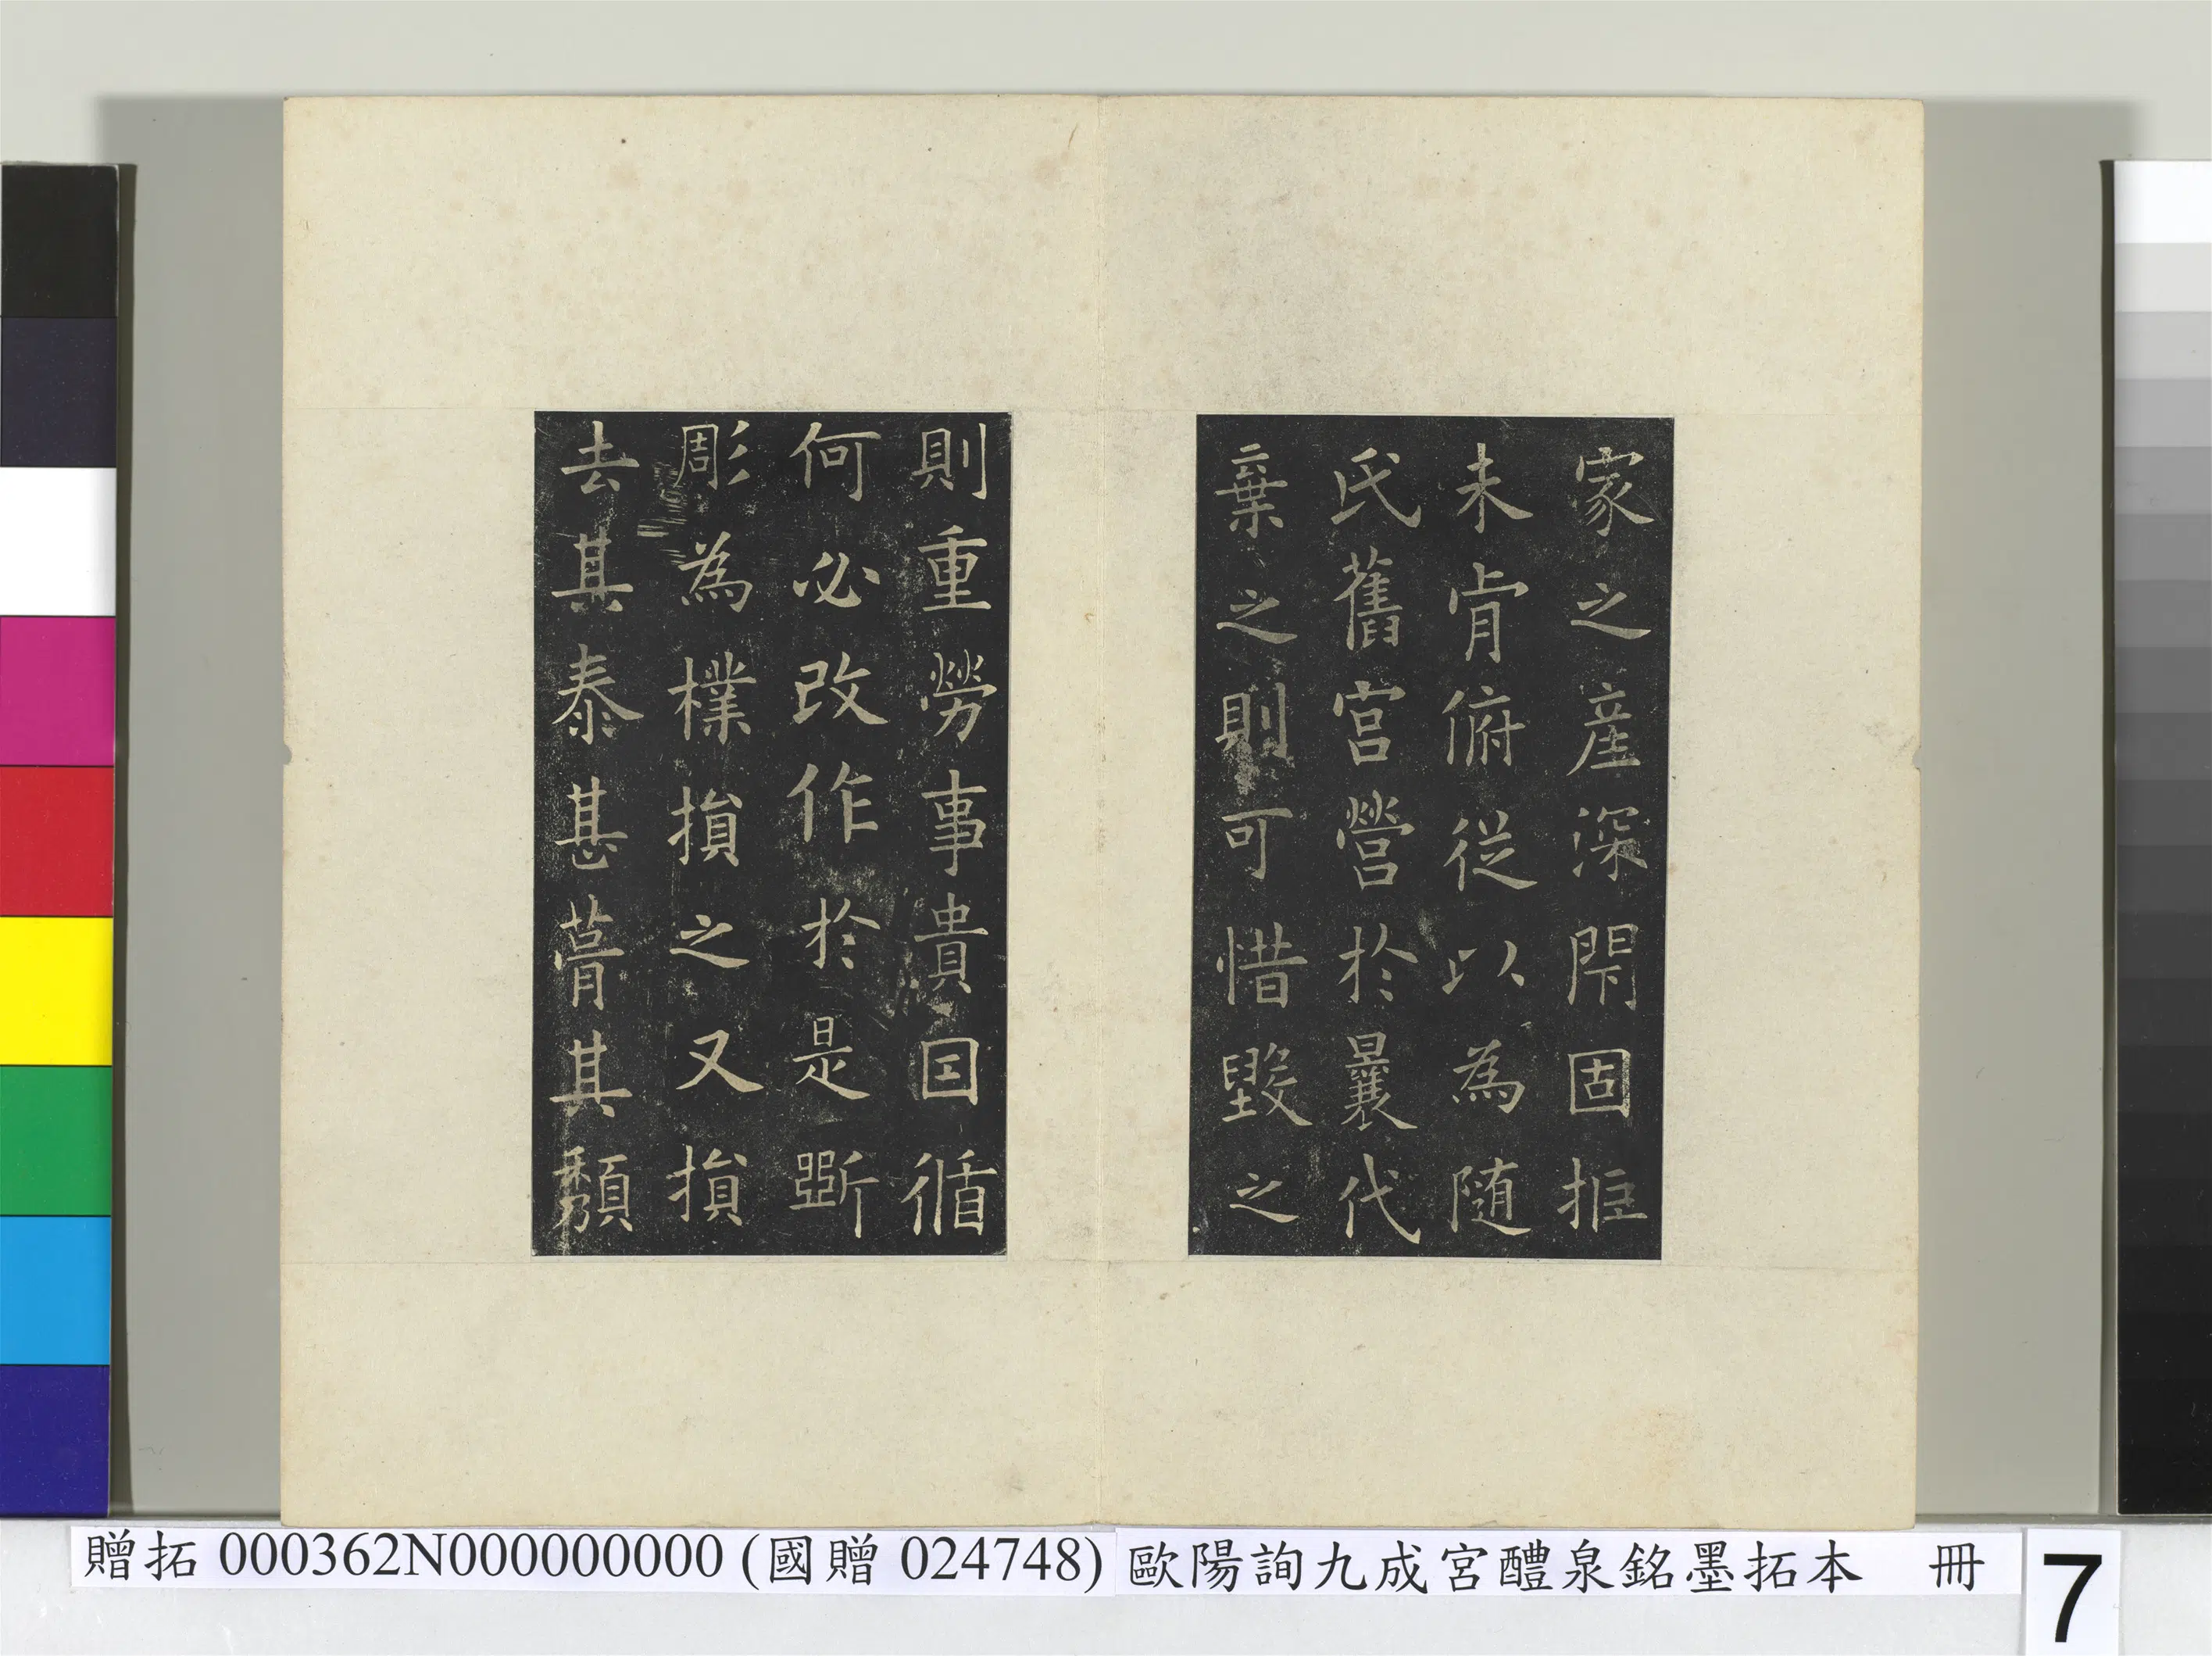 家之產深閇固拒
未肯俯從以為隨
氏舊宮營於曩代
棄之則可惜毀之
則重勞事貴因循
何必改作於是斲
彫為樸損之又損
去其泰甚葺其頹
贈拓 000362N000000000 (國贈 024748) 歐陽詢九成宮醴泉銘墨拓本 冊
7